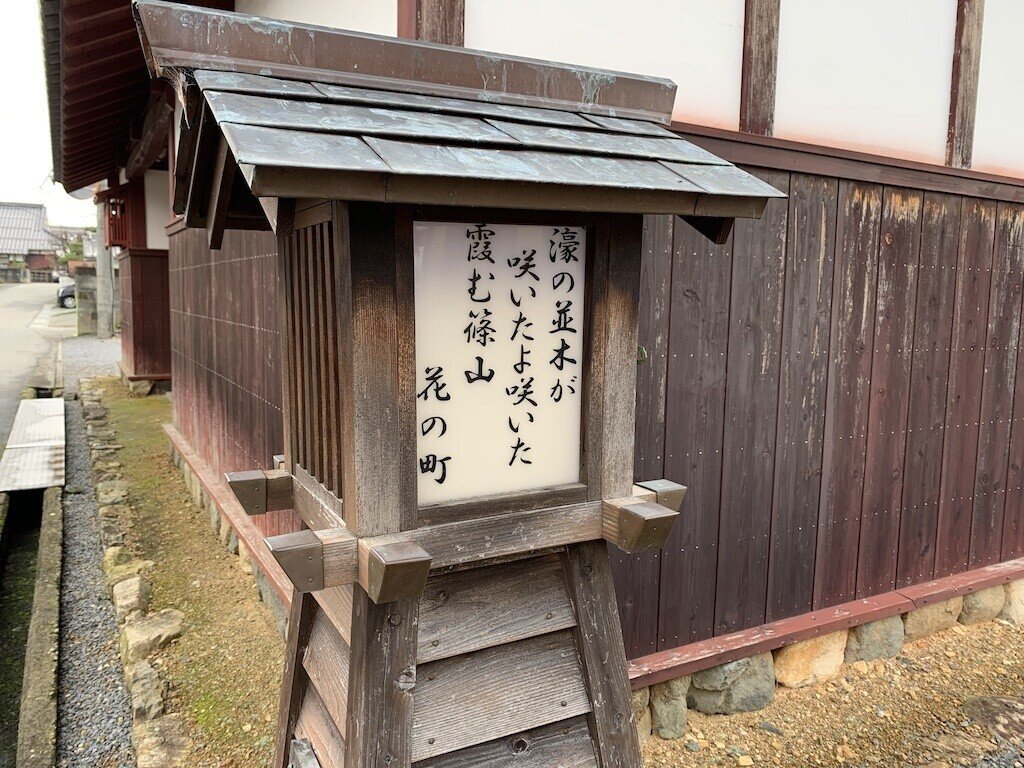 濠の並木が
咲いたよ咲いた
霞む篠山
花の町